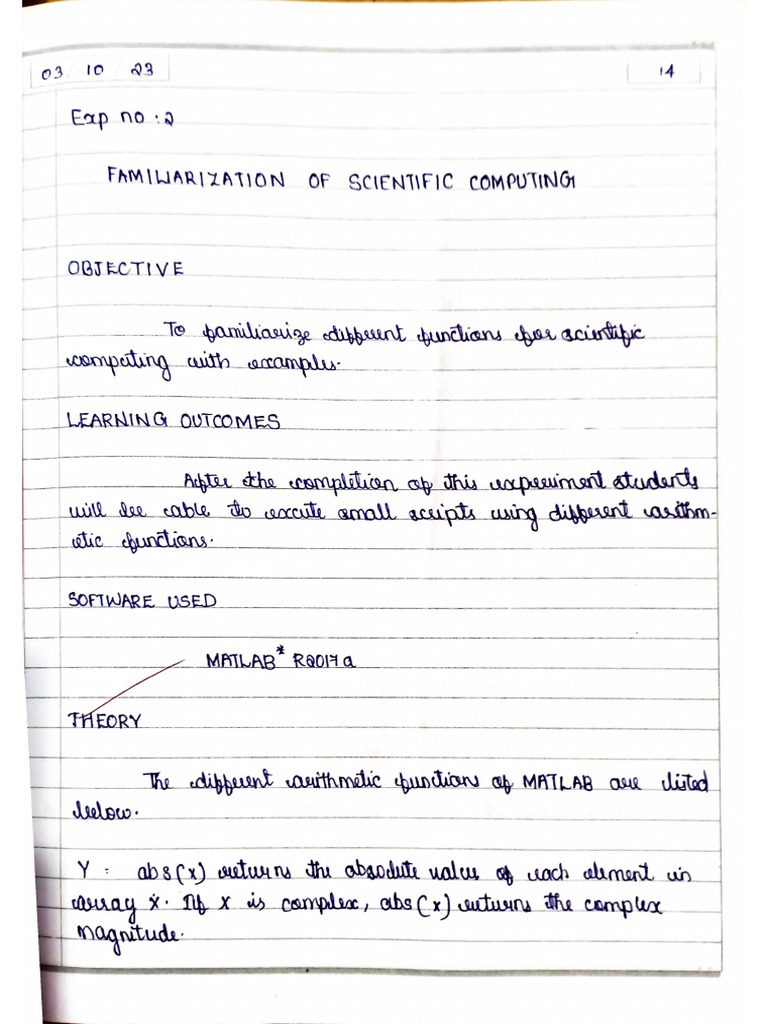 03 10 23
14
Exp no : 2
FAMILIARIZATION OF SCIENTIFIC COMPUTING
OBJECTIVE
To familiarize different functions for scientific
computing with examples.
LEARNING OUTCOMES
After the completion of this experiment students
will be able to excute small scripts using different arithm-
etic functions.
SOFTWARE USED
MATLAB* R2017a
THEORY
The different arithmetic functions of MATLAB are listed
below.
Y = abs(x) returns the absolute value of each element in
array x. If x is complex, abs(x) returns the complex
magnitude.